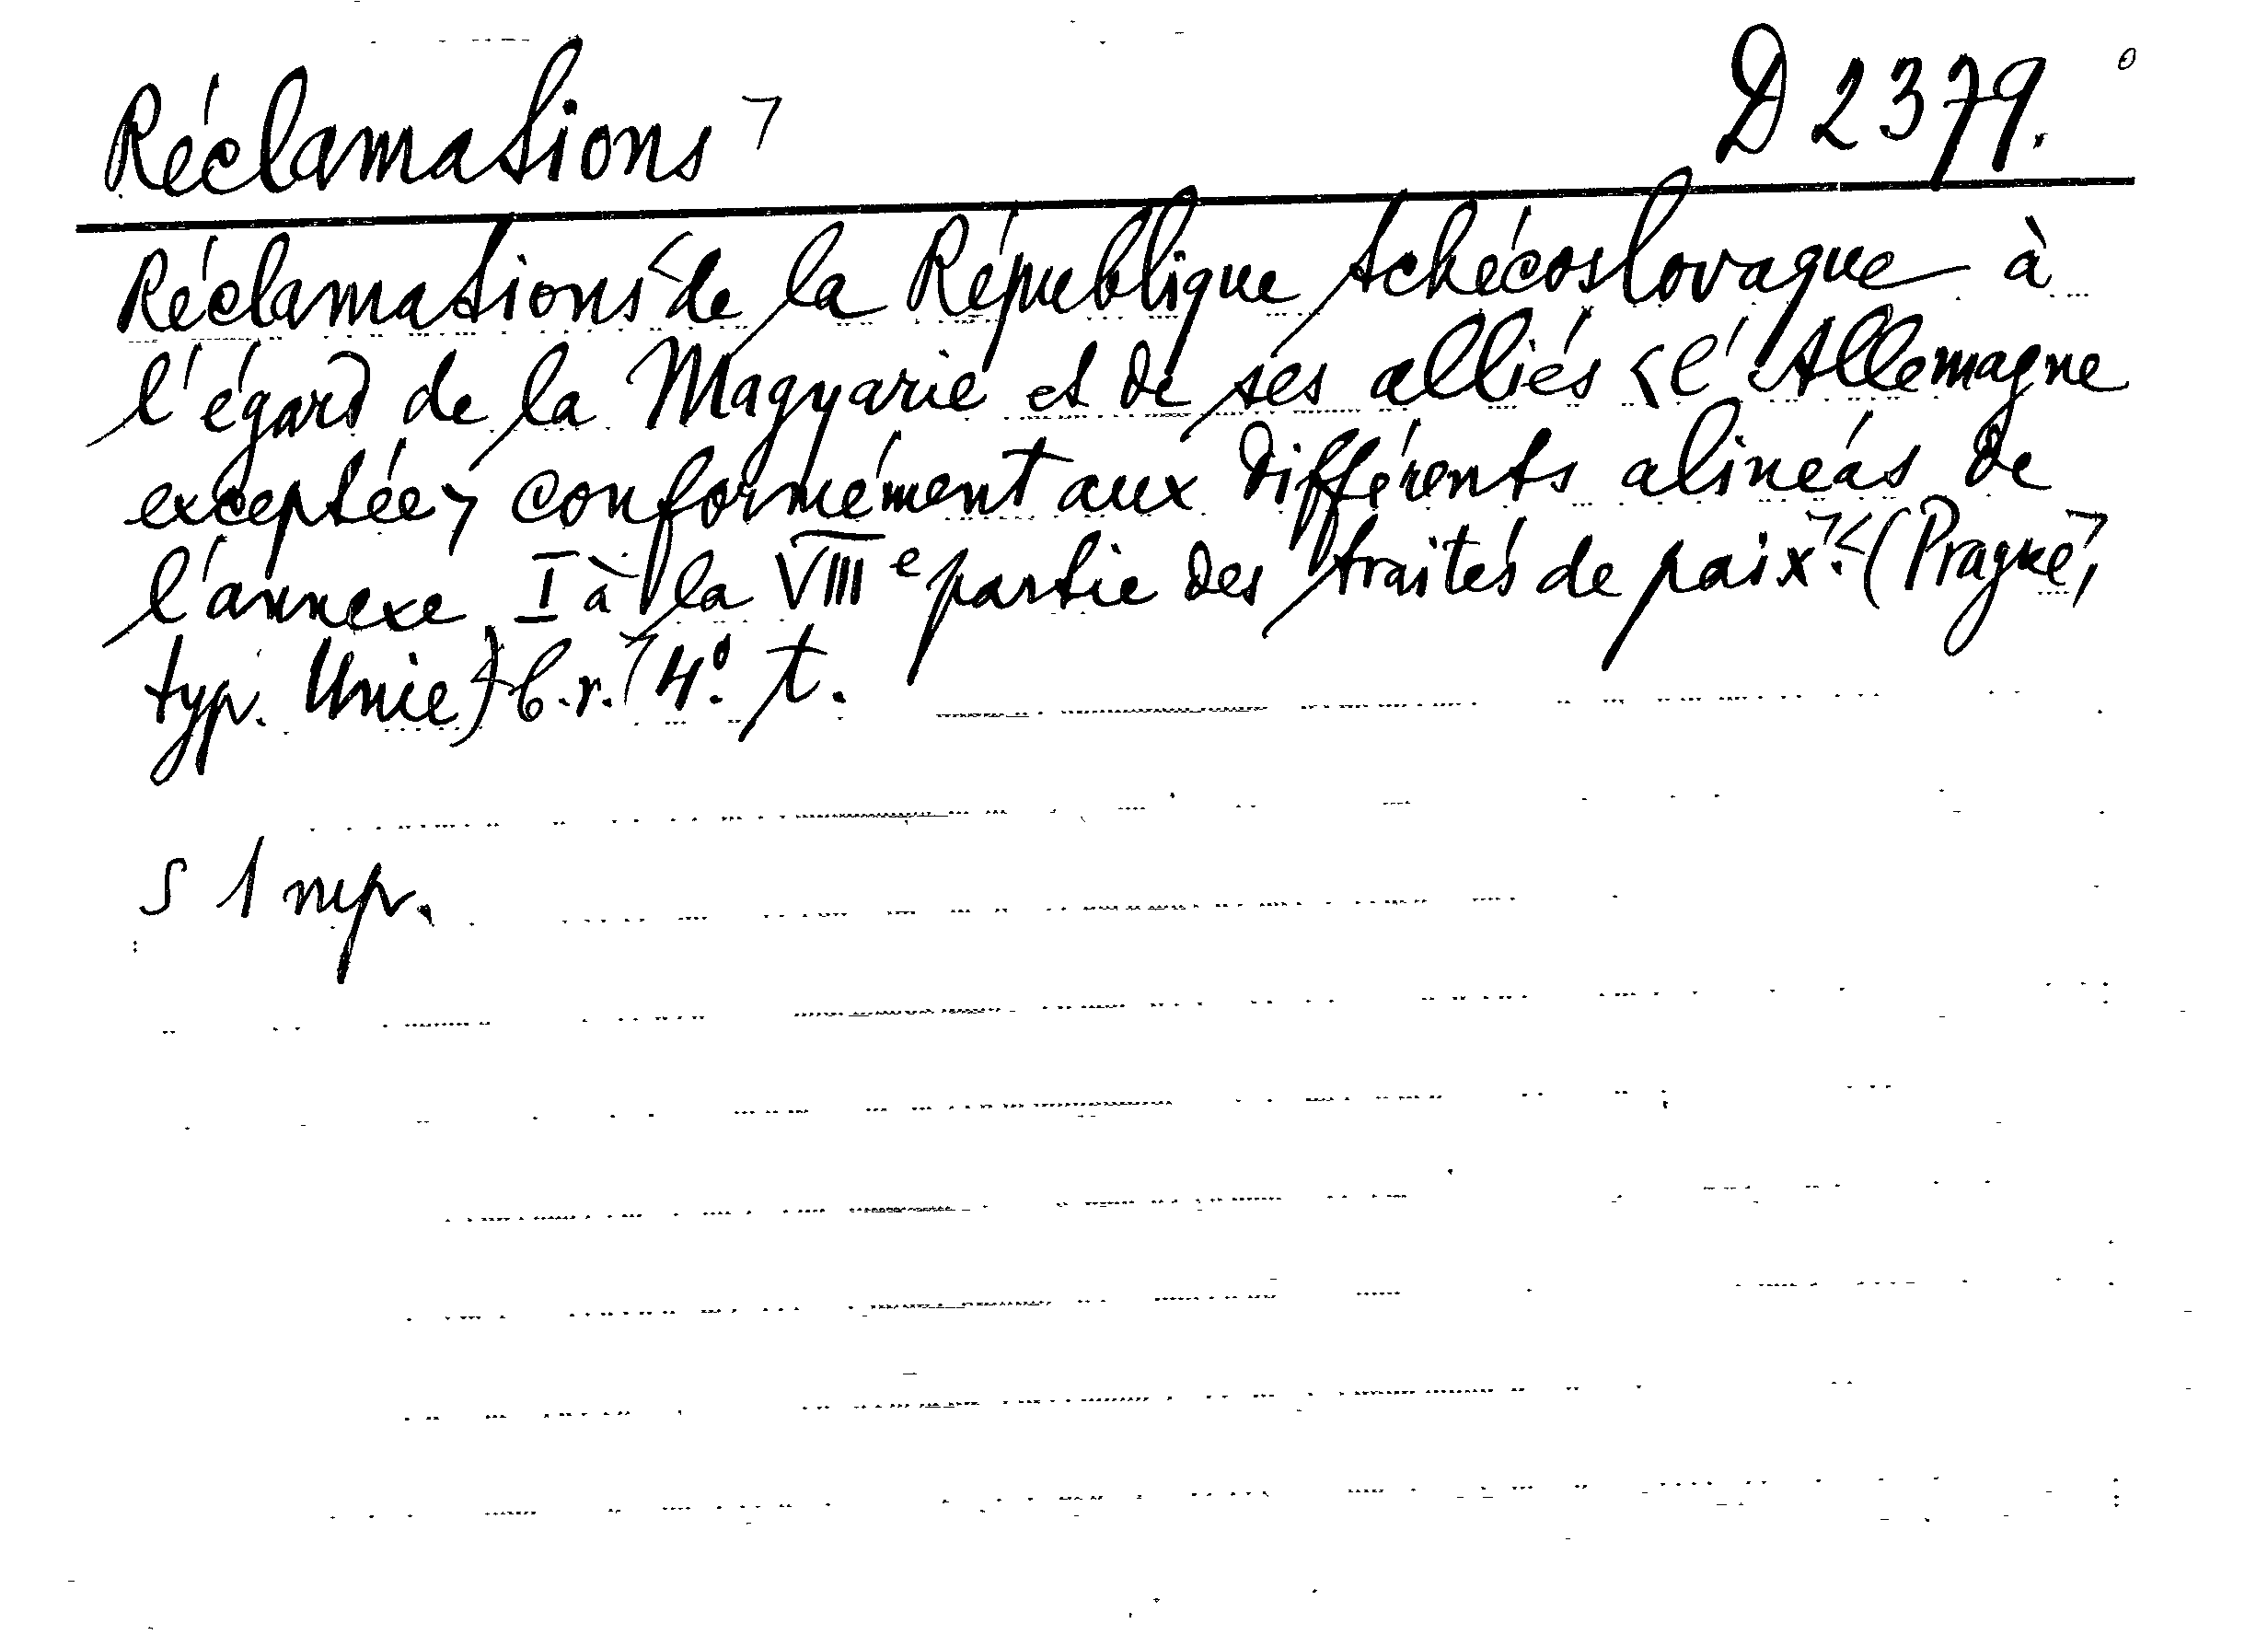 Réclamations
D 2379.
Réclamations de la République tchécoslovaque à
l'égard de la Magyarie et de ses alliés <l'Allemagne
exceptée> conformément aux différents alinéas de
l'annexe I à la VIIIe partie des traités de paix. (Prague,
typ. Unie) b.r. 4º. t.
S 1 nep.